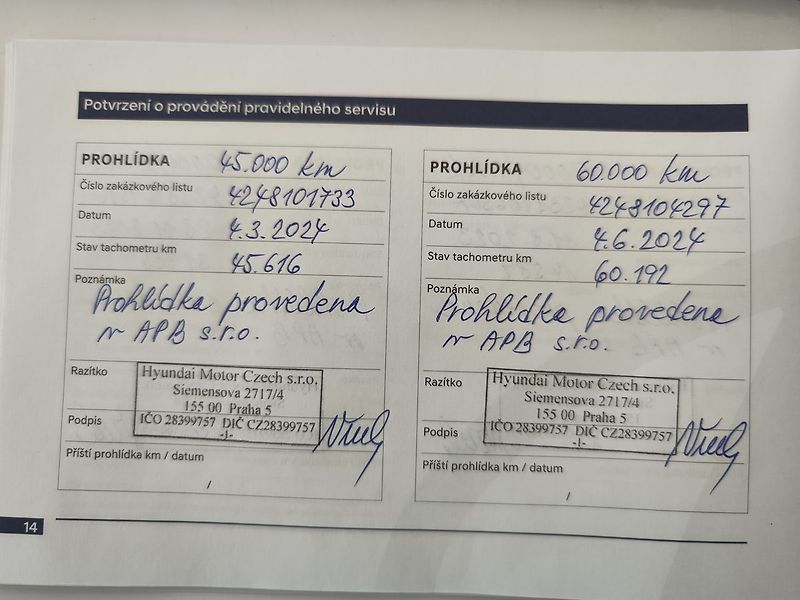 Potvrzení o provádění pravidelného servisu
PROHLÍDKA 45.000 km
Číslo zakázkového listu 4248101733
Datum 4.3.2024
Stav tachometru km 45.616
Poznámka
Prohlídka provedena
v APB s.r.o.
Razítko
Hyundai Motor Czech s.r.o.
Siemensova 2717/4
155 00 Praha 5
IČO 28399757 DIČ CZ28399757
-1-
Podpis
Příští prohlídka km / datum
/
PROHLÍDKA 60.000 km
Číslo zakázkového listu 4248104297
Datum 4.6.2024
Stav tachometru km 60.192
Poznámka
Prohlídka provedena
v APB s.r.o.
Razítko
Hyundai Motor Czech s.r.o.
Siemensova 2717/4
155 00 Praha 5
IČO 28399757 DIČ CZ28399757
-1-
Podpis
Příští prohlídka km / datum
/
14